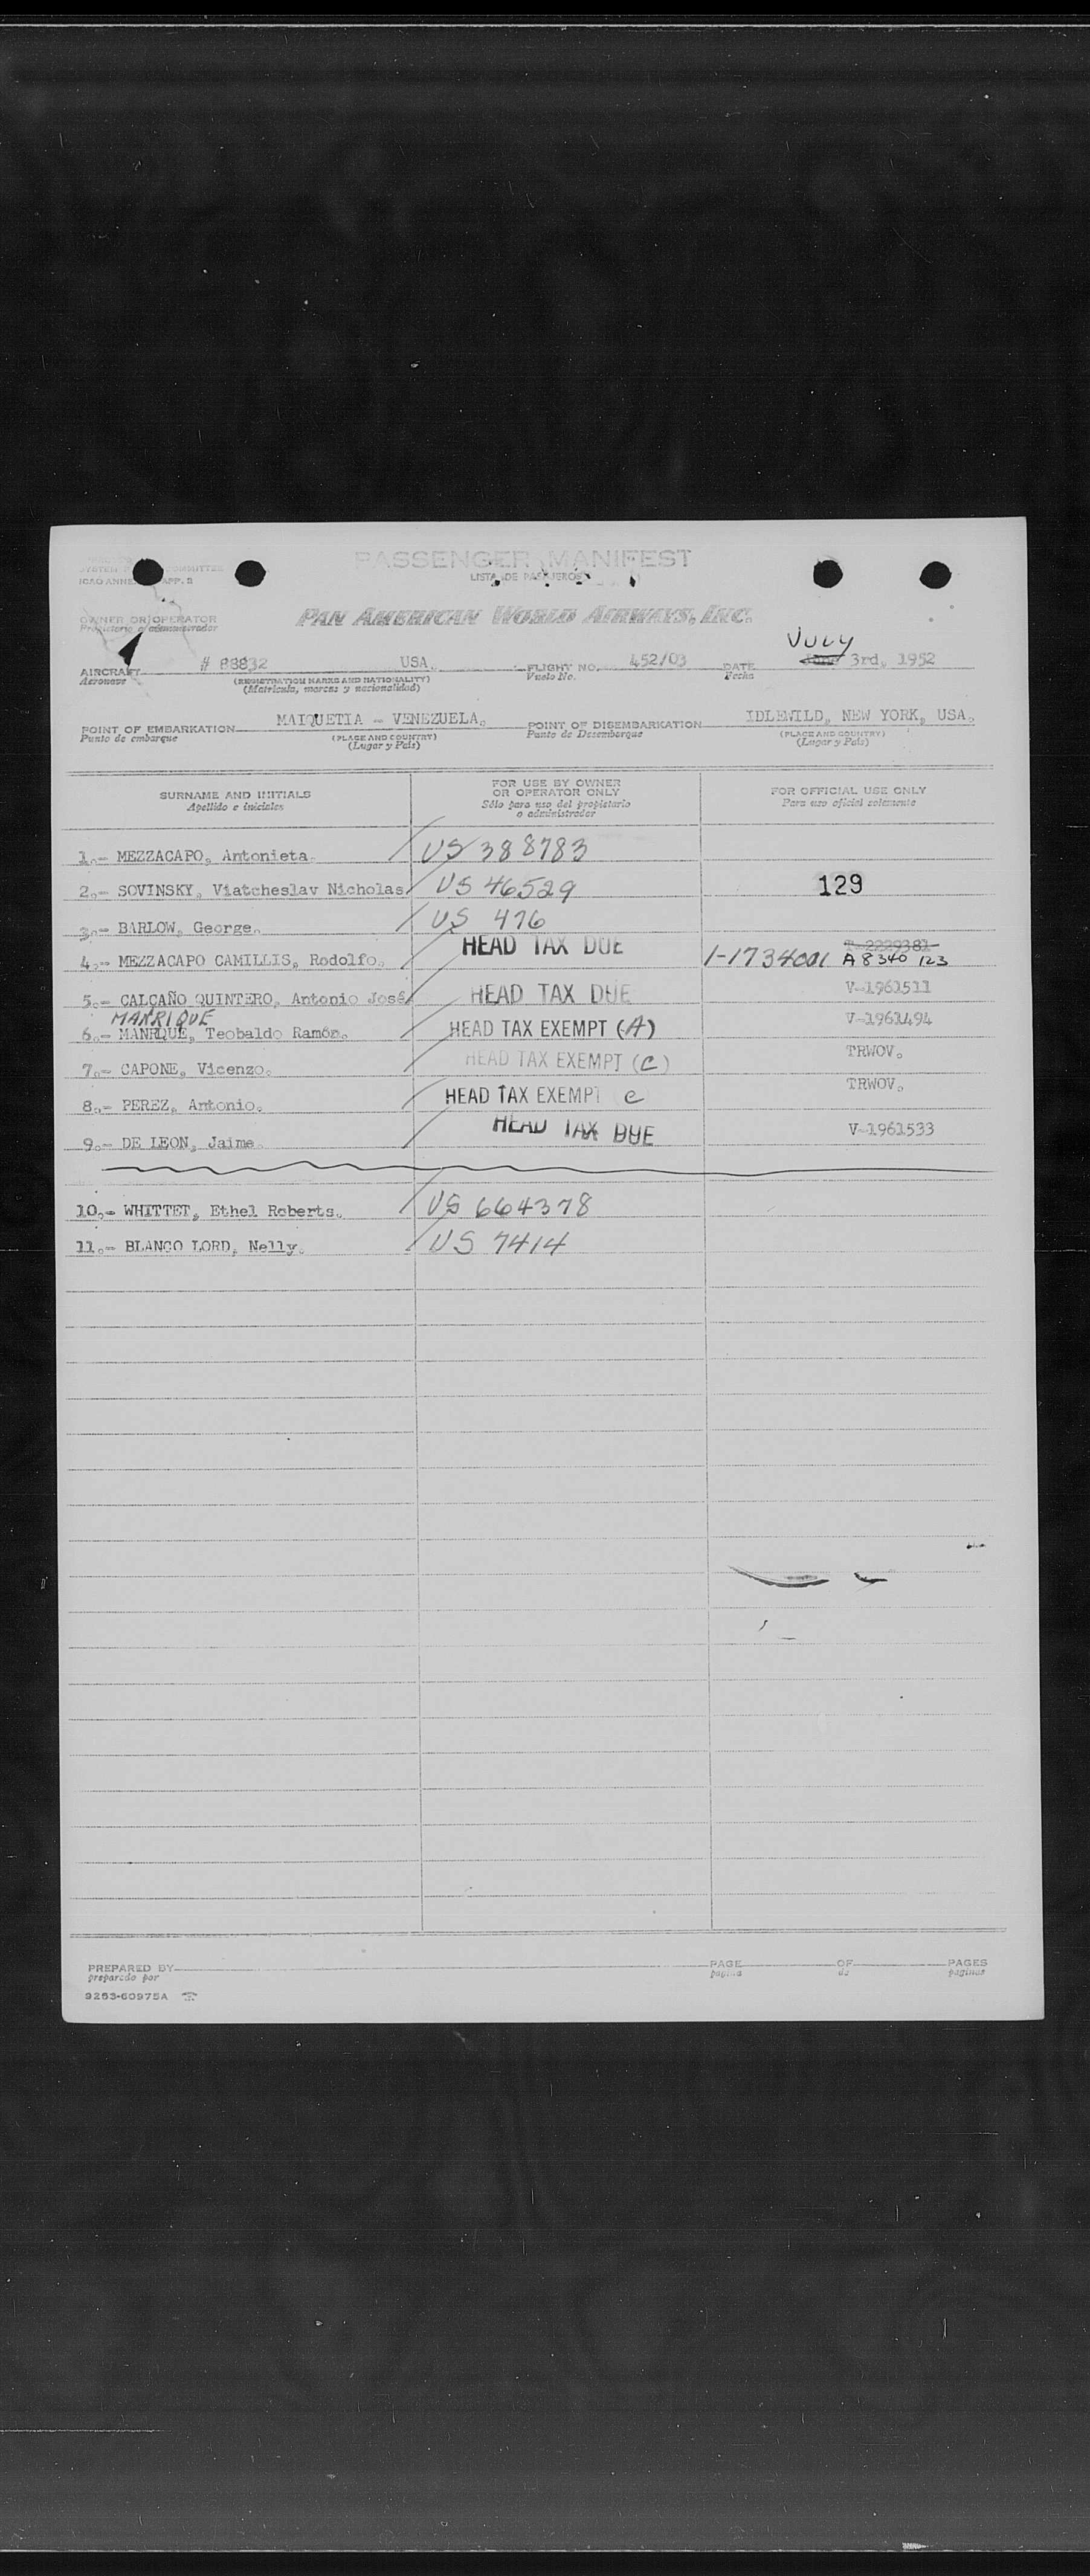 PASSENGER MANIFEST
LISTA DE PASAJEROS
SYSTEM COMMITTEE
ICAO ANNEX APP. 2
OWNER OR OPERATOR
Propietario o administrador
PAN AMERICAN WORLD AIRWAYS, INC.
JULY
AIRCRAFT # 88832 USA. FLIGHT NO. 452/03 DATE June 3rd, 1952
Aeronave (REGISTRATION MARKS AND NATIONALITY) Vuelo No. Fecha
(Matricula, marcas y nacionalidad)
POINT OF EMBARKATION MAIQUETIA - VENEZUELA. POINT OF DISEMBARKATION IDLEWILD, NEW YORK, USA.
Punto de embarque (PLACE AND COUNTRY) Punto de Desembarque (PLACE AND COUNTRY)
(Lugar y País) (Lugar y País)
SURNAME AND INITIALS FOR USE BY OWNER OR OPERATOR ONLY FOR OFFICIAL USE ONLY
Apellido e iniciales Sólo para uso del propietario o administrador Para uso oficial solamente
1.- MEZZACAPO, Antonieta. US 388783
2.- SOVINSKY, Viatcheslav Nicholas US 46529 129
3.- BARLOW, George. US 476
4.- MEZZACAPO CAMILLIS, Rodolfo. HEAD TAX DUE 1-1734001 A8340 123
5.- CALCAÑO QUINTERO, Antonio José HEAD TAX DUE V-1961511
MANRIQUE
6.- MANRQUE, Teobaldo Ramón. HEAD TAX EXEMPT (A) V-1961494
7.- CAPONE, Vicenzo. HEAD TAX EXEMPT (C) TRWOV.
8.- PEREZ, Antonio. HEAD TAX EXEMPT C TRWOV.
9.- DE LEON, Jaime. HEAD TAX DUE V-1961533
10.- WHITTET, Ethel Roberts. US 664378
11.- BLANCO LORD, Nelly. US 7414
PREPARED BY PAGE OF PAGES
preparado por página de paginas
9263-60975A